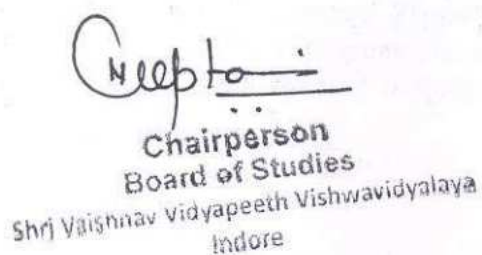 Chairperson
Board of Studies
Shri Vaishnav Vidyapeeth Vishwavidyalaya
Indore